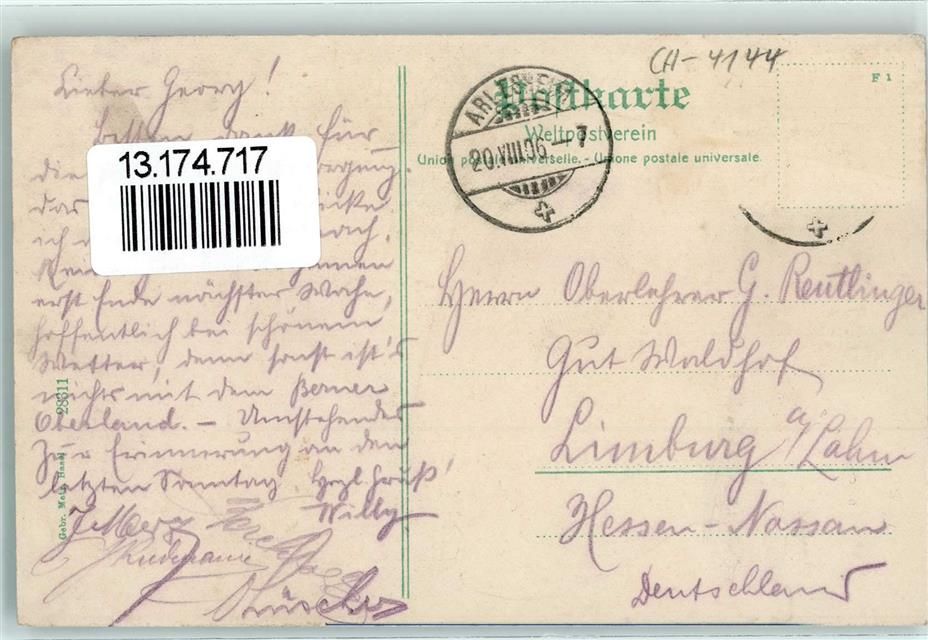 CH-4144
Postkarte
Weltpostverein
Union postale universelle. - Unione postale universale.
F 1
ARLESHEIM
20.VIII.06 - 7
13.174.717
Lieber Georg!
Besten Dank für
die
das
ich
erst Ende nächster Woche,
hoffentlich bei schönem
Wetter, denn sonst ist's
nichts mit dem Berner
Oberland. - Umstehendes
zur Erinnerung an den
letzten Sonntag. Hrzl. Gruß!
Willy
Lüscher
Herrn Oberlehrer G. Reutlinger
Gut Waldhof
Limburg a/Lahn
Hessen-Nassau
Deutschland
Gebr. Metz, Basel 28311